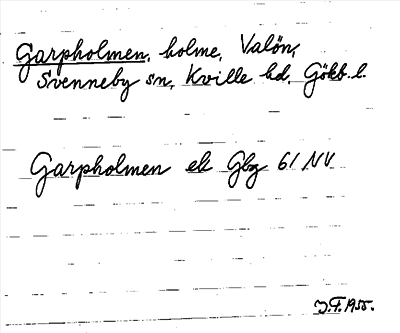 Garpholmen, holme, Valön,
Svenneby sn, Kville hd, Gökb. l.
Garpholmen ek Gbg 61 NV
J.F. 1955.